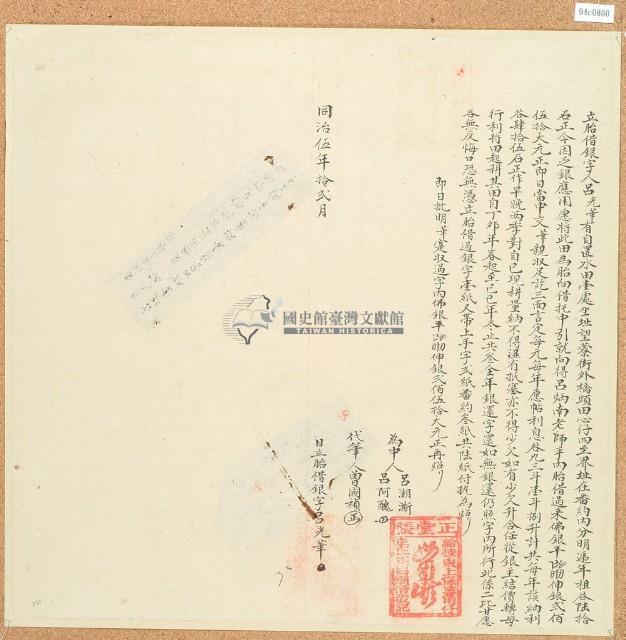 04c0860
立胎借銀字人呂光華有自置水田壹處坐址望藔街外橋頭田心仔四至界址在番約內分明遞年租谷陸拾
石正今因乏銀應用愿將此田為胎向借托中引就向得呂炳南老師手內胎借過來佛銀平 伸銀貳佰
伍拾大元正即日當中交華親收足訖三面言定每元每年愿帖利息谷九三斗壹斗捌升計共每年該納利
谷肆拾伍石正作早晚兩季對自己現耕量納不得濕有抵塞亦不得少欠如有少欠升合任從銀主結價轉母
行利將田起耕其田自丁卯年春起至己巳年冬止共叁全年銀還字還如無銀還仍照字內所行此係二比甘愿
各無反悔口恐無憑立胎借過銀字壹紙又帶上手字貳紙番約叁紙共陸紙付執為炤
即日批明華寔收過字內佛銀平 伸銀貳佰伍拾大元正再炤
為中人 呂湘漸
呂阿醜
代筆人曾國禎
同治伍年拾貳月
日立胎借銀字呂光華
正堂張
國史館臺灣文獻館
TAIWAN HISTORICA